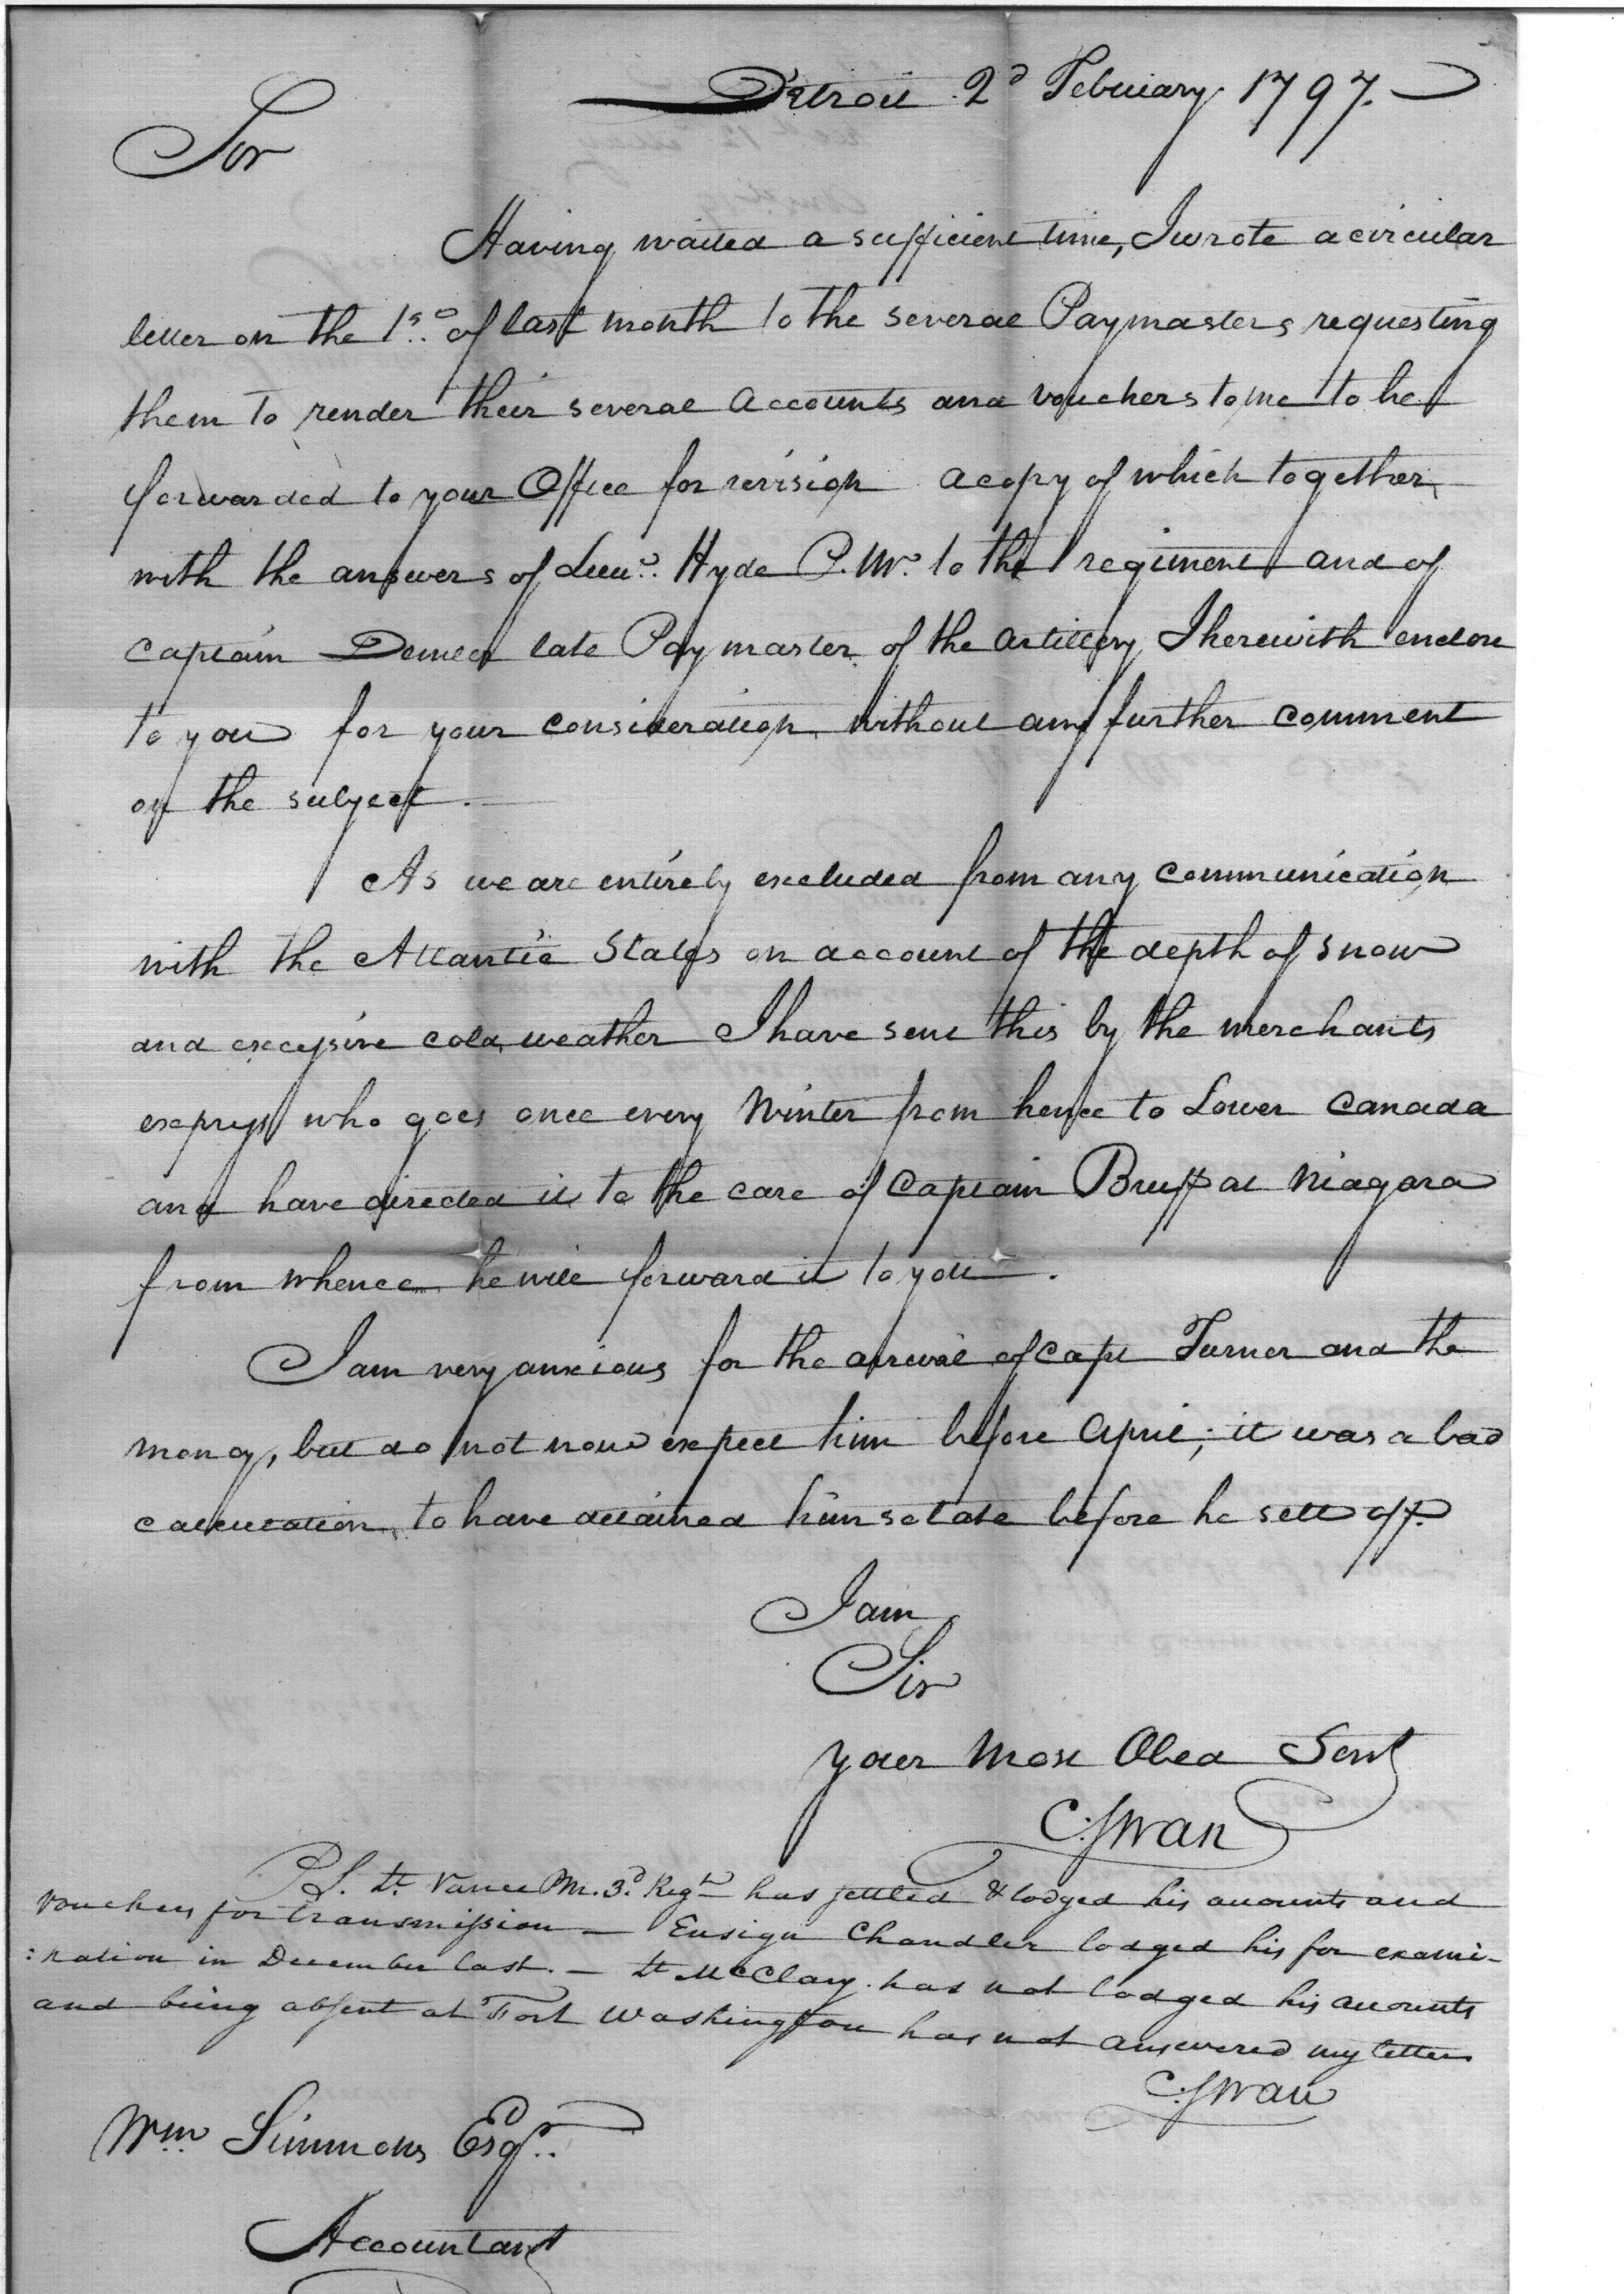 Detroit 2d February 1797.
Sir
Having waited a sufficient time, I wrote a circular
letter on the 1st of last month to the several Paymasters requesting
them to render their several accounts and vouchers to me to be
forwarded to your Office for revision a copy of which together
with the answers of Lieut. Hyde P. Mr. to the 1 regiment and of
captain Demler late Paymaster of the artillery I herewith enclose
to you for your consideration without any further comment
on the subject.
As we are entirely excluded from any communication
with the Atlantic States on account of the depth of snow
and excessive cold weather I have sent this by the merchants
express who goes once every Winter from hence to Lower Canada
and have directed it to the care of Captain Bruff at Niagara
from whence he will forward it to you.
I am very anxious for the arrival of Capt Turner and the
money, but do not now expect him before April; it was a bad
calculation to have detained him so late before he sett off.
I am
Sir
your Most Obed Servt
C: Swan
P.S. Lt. Vance P M. 3d. Regt has settled & lodged his accounts and
vouchers for transmission — Ensign Chandler lodged his for exami-
:nation in December last. — Lt McClary has not lodged his accounts
and being absent at Fort Washington has not answered my letter
C: Swan
Wm Simmons Esqr.
Accountant